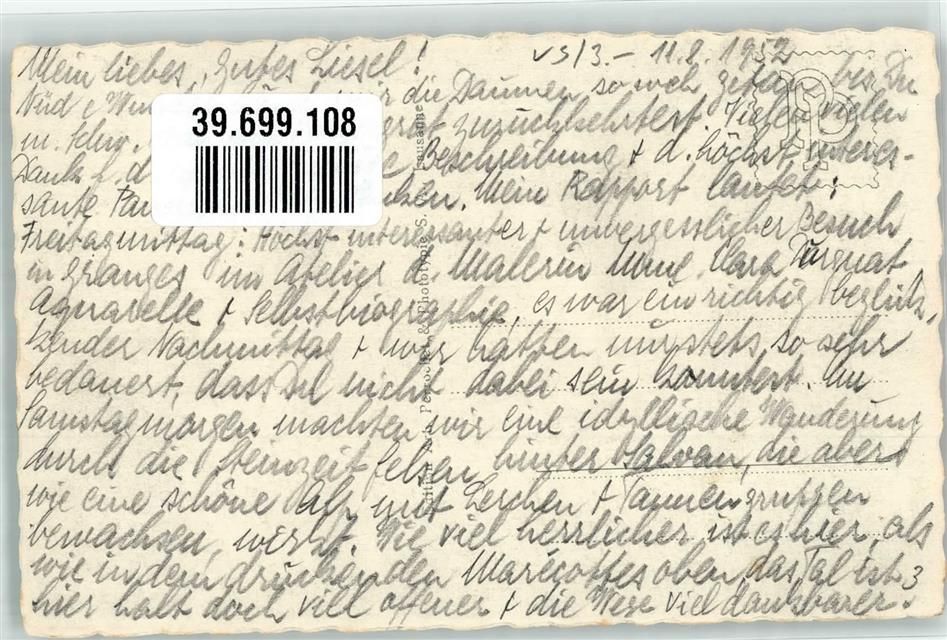 VS/3. - 11.8.1952
Mein liebes, gutes Liesel!
die Daumen so weh getan bis Du
m. Schw. zurückkehrtest. Vielen vielen
39.699.108
Dank f. d Beschreibung + d. höchst interes-
sante Mein Rapport lautet:
Freitagmittag: Höchst interessanter + unvergesslicher Besuch
in Granges im Atelier d. Malerin Mme. Clara Durgnat
Aquarelle + Selbstbiographie, es war ein richtig beglük-
kender Nachmittag + wir hatten nur stets so sehr
bedauert, dass Du nicht dabei sein konntest. Am
Samstagmorgen machten wir eine idyllische Wanderung
durch die Steinzeitfelsen hinter Salvan, die aber
wie eine schöne Alp mit Lerchen + Tannengruppen
bewachsen, wirkt. Wie viel herrlicher ist es hier, als
wie in dem drückenden Marécottes oben, das Tal ist
hier halt doch viel offener + die Wiese viel dankbarer.
3
Perrochet Phototypie S. Lausanne